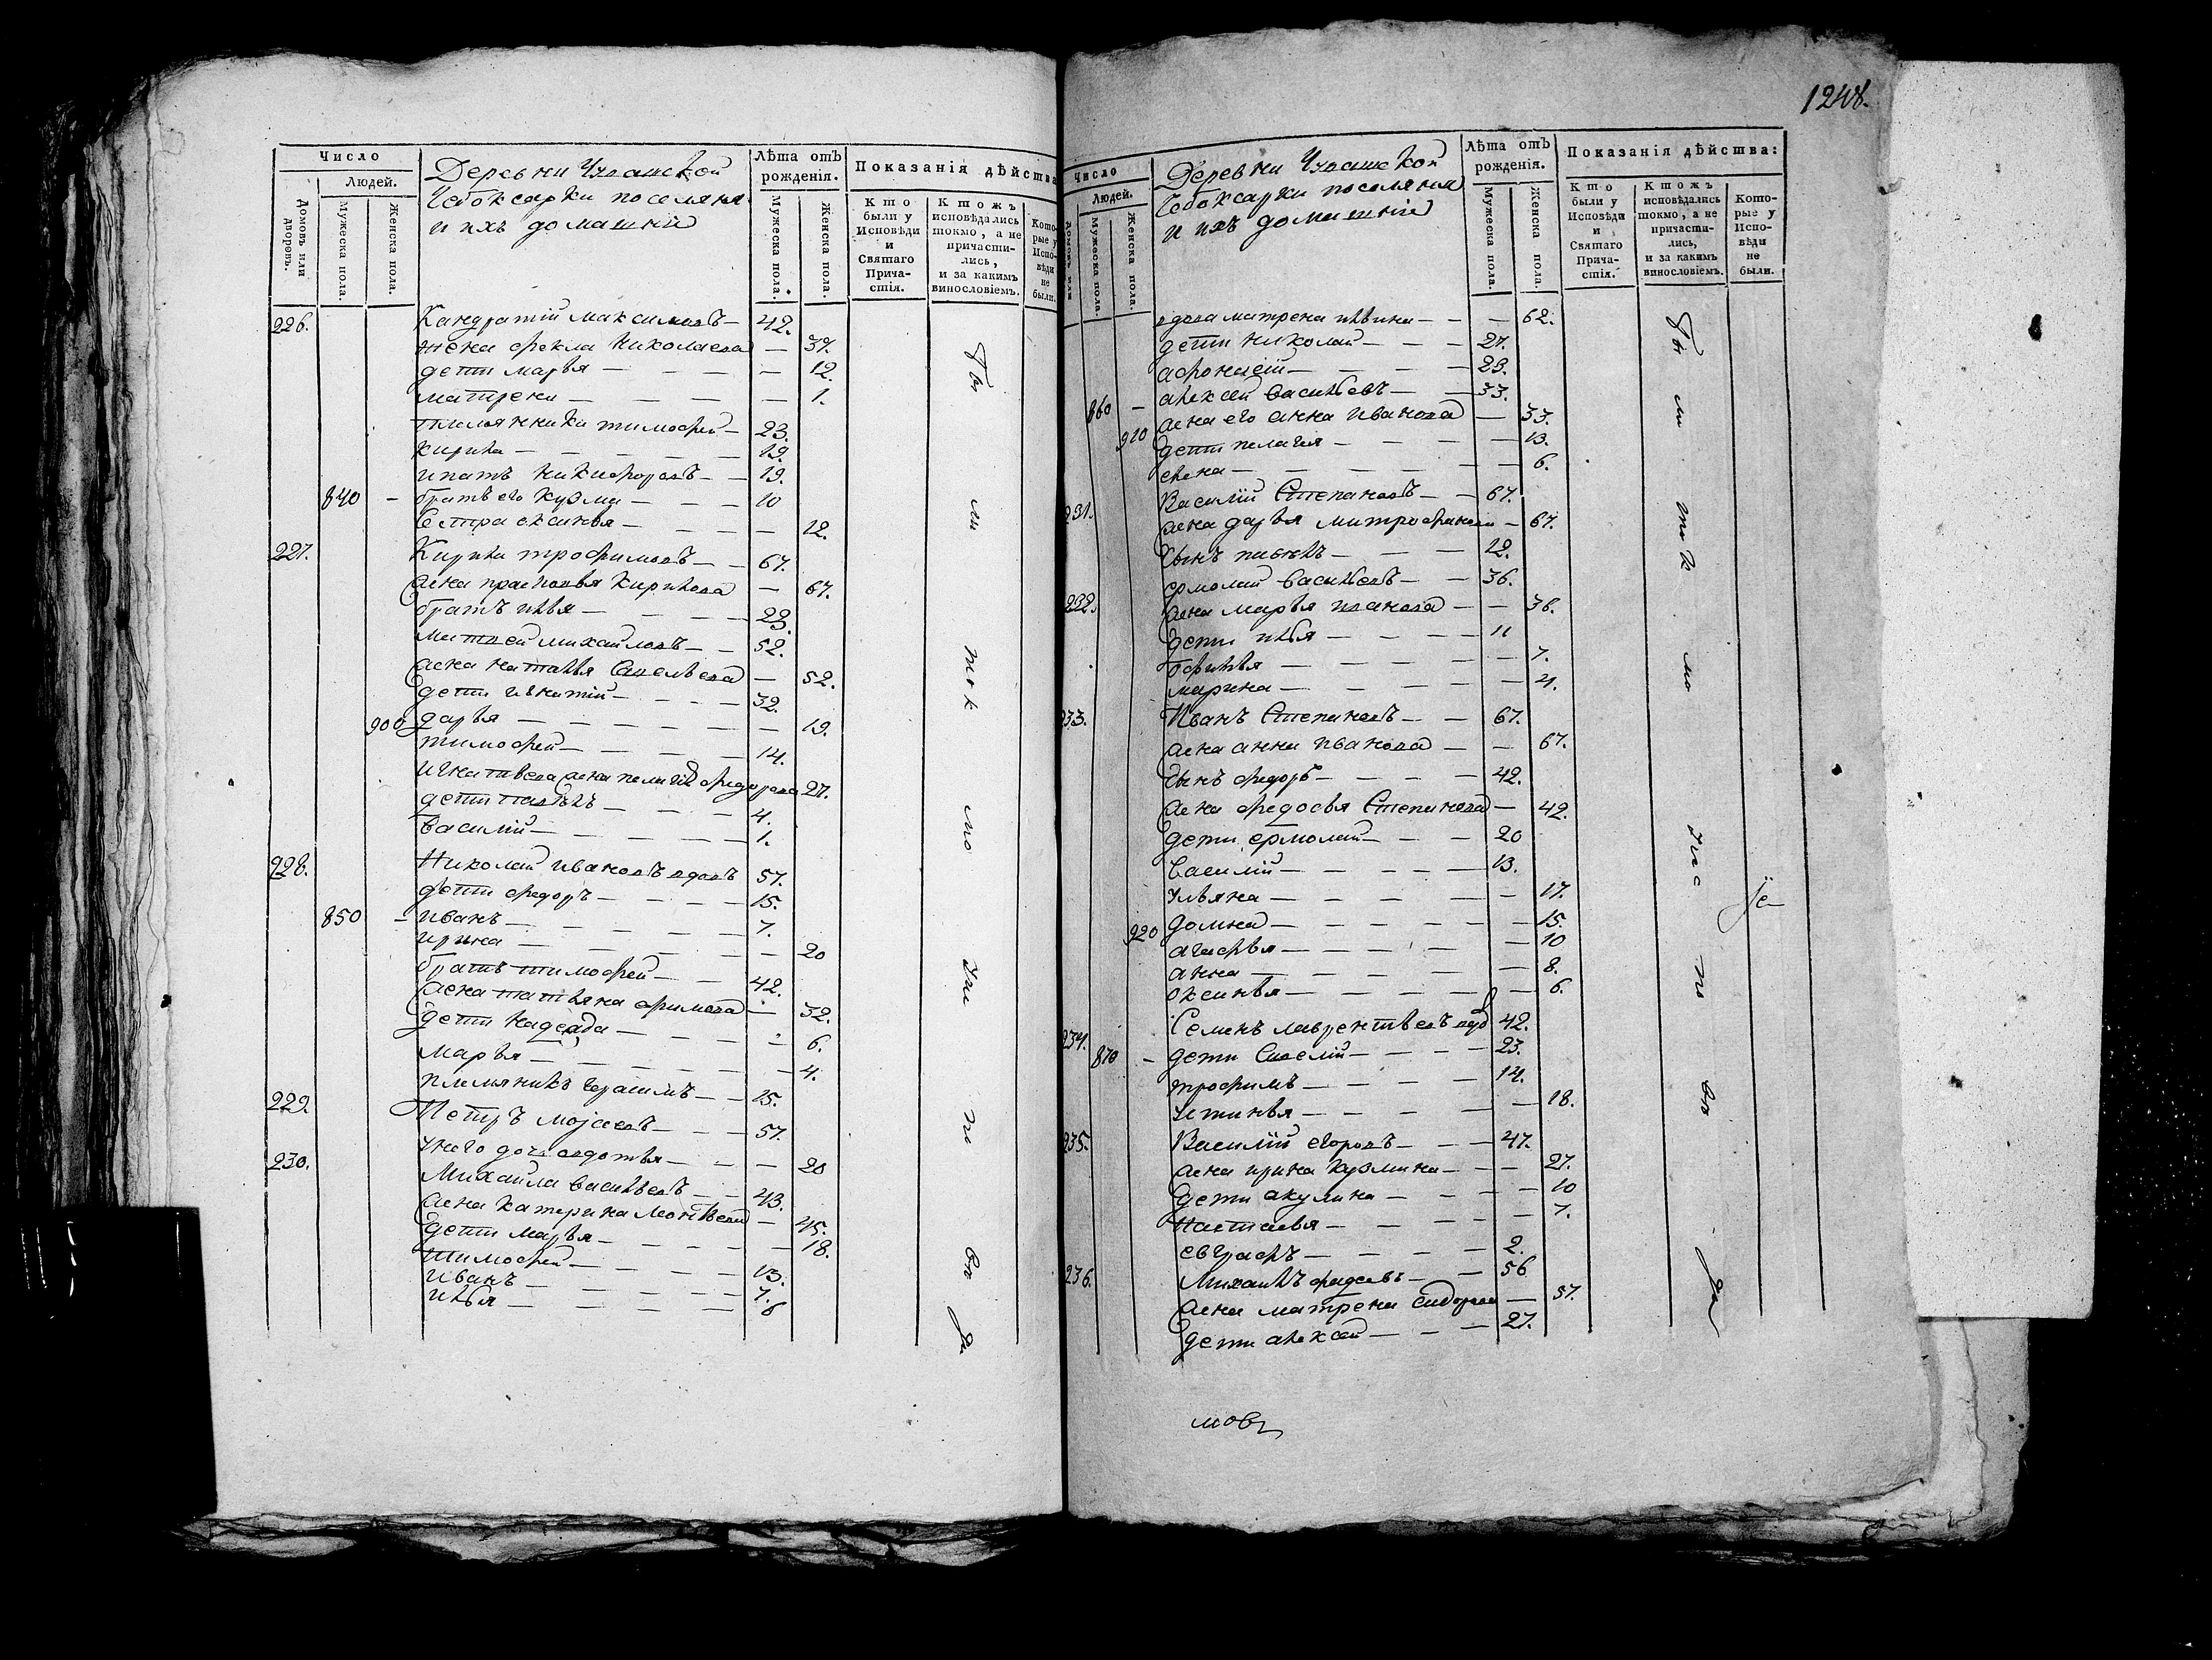 Число
Людей.
Домовъ или дворовъ.
Мужеска пола.
Женска пола.
Деревни Чувашской
Чебоксарки поселяня
и ихъ домашніе
Лѣта отъ рожденія.
Мужеска пола.
Женска пола.
Показанія дѣйства
Кто были у Исповѣди и Святаго Причастія.
Ктожъ исповѣдались токмо, а не причастились, и за какимъ винословіемъ.
Которые у Исповѣди не были.
226. Кандратій Максимовъ — 42.
жена фекла Николаева — 37.
дети марья — 12.
матрена — 1.
племянники тимофей — 23.
кирила — 19.
ипатъ никифоровъ — 19.
840 — братъ его кузма — 10
сестра оксинья — 12.
227. Кирила трофимовъ — 67.
жена прасковья Кирилова — 67.
братъ илья — 23.
матвей михайловъ — 52.
жена наталья Савельева — 52.
дети игнатій — 32.
900 дарья — 19.
тимофей — 14.
игнатьева жена пелагия федорова 27.
дети павелъ — 4.
Василій — 1.
228. Николай ивановъ вдовъ 57.
дети федоръ — 15.
850 — иванъ — 7.
ирина — 20
братъ тимофей — 42.
жена татьяна ефимова — 32.
дети надежда — 6.
марья — 4.
племяникъ герасимъ — 15.
229. Петръ моѵсеевъ — 57.
у него дочь авдотья — 20
230. Михайла васильевъ — 43.
жена катерина 45.
дети марья — 18.
тимофей — 13.
иванъ — 7.
илья — 6
1248.
Число
Людей.
Мужеска пола.
Женска пола.
Деревни Чувашской
Чебоксарки поселяня
и ихъ домашніе
Лѣта отъ рожденія.
Мужеска пола.
Женска пола.
Показанія дѣйства:
Кто были у Исповѣди и Святаго Причастія.
Ктожъ исповѣдались токмо, а не причастились, и за какимъ винословіемъ.
Которые у Исповѣди не были.
вдова матрена ильина — 62.
дети николай — 27.
афонасей — 23.
860 — алексей васильевъ — 33.
жена его анна иванова — 33.
910 дети пелагея — 13.
елена — 6.
231. Василій Степановъ — 67.
жена дарья митрофанова — 67.
сынъ павелъ — 12.
ермолай васильевъ — 36.
232. жена марья иванова — 36.
дети илья — 11
офимья — 7.
марина — 4.
233. Иванъ Степановъ — 67.
жена анна иванова — 67.
сынъ федоръ — 42.
жена федосья Степанова — 42.
дети ермолай — 20
василій — 13.
ульяна — 17.
920 домна — 15.
агафья — 10
анна — 8.
оксинья — 6.
234. Семенъ лаврентьевъ вдо 42.
870 — дети Савелій — 23.
трофимъ — 14.
устинья — 18.
235. Василій егоровъ — 47.
жена ирина кузмина — 27.
дети акулина — 10
настасья — 7.
евграфъ — 2.
236. Михаилъ 56
жена матрена сидорова — 57.
дети алексей — 27.